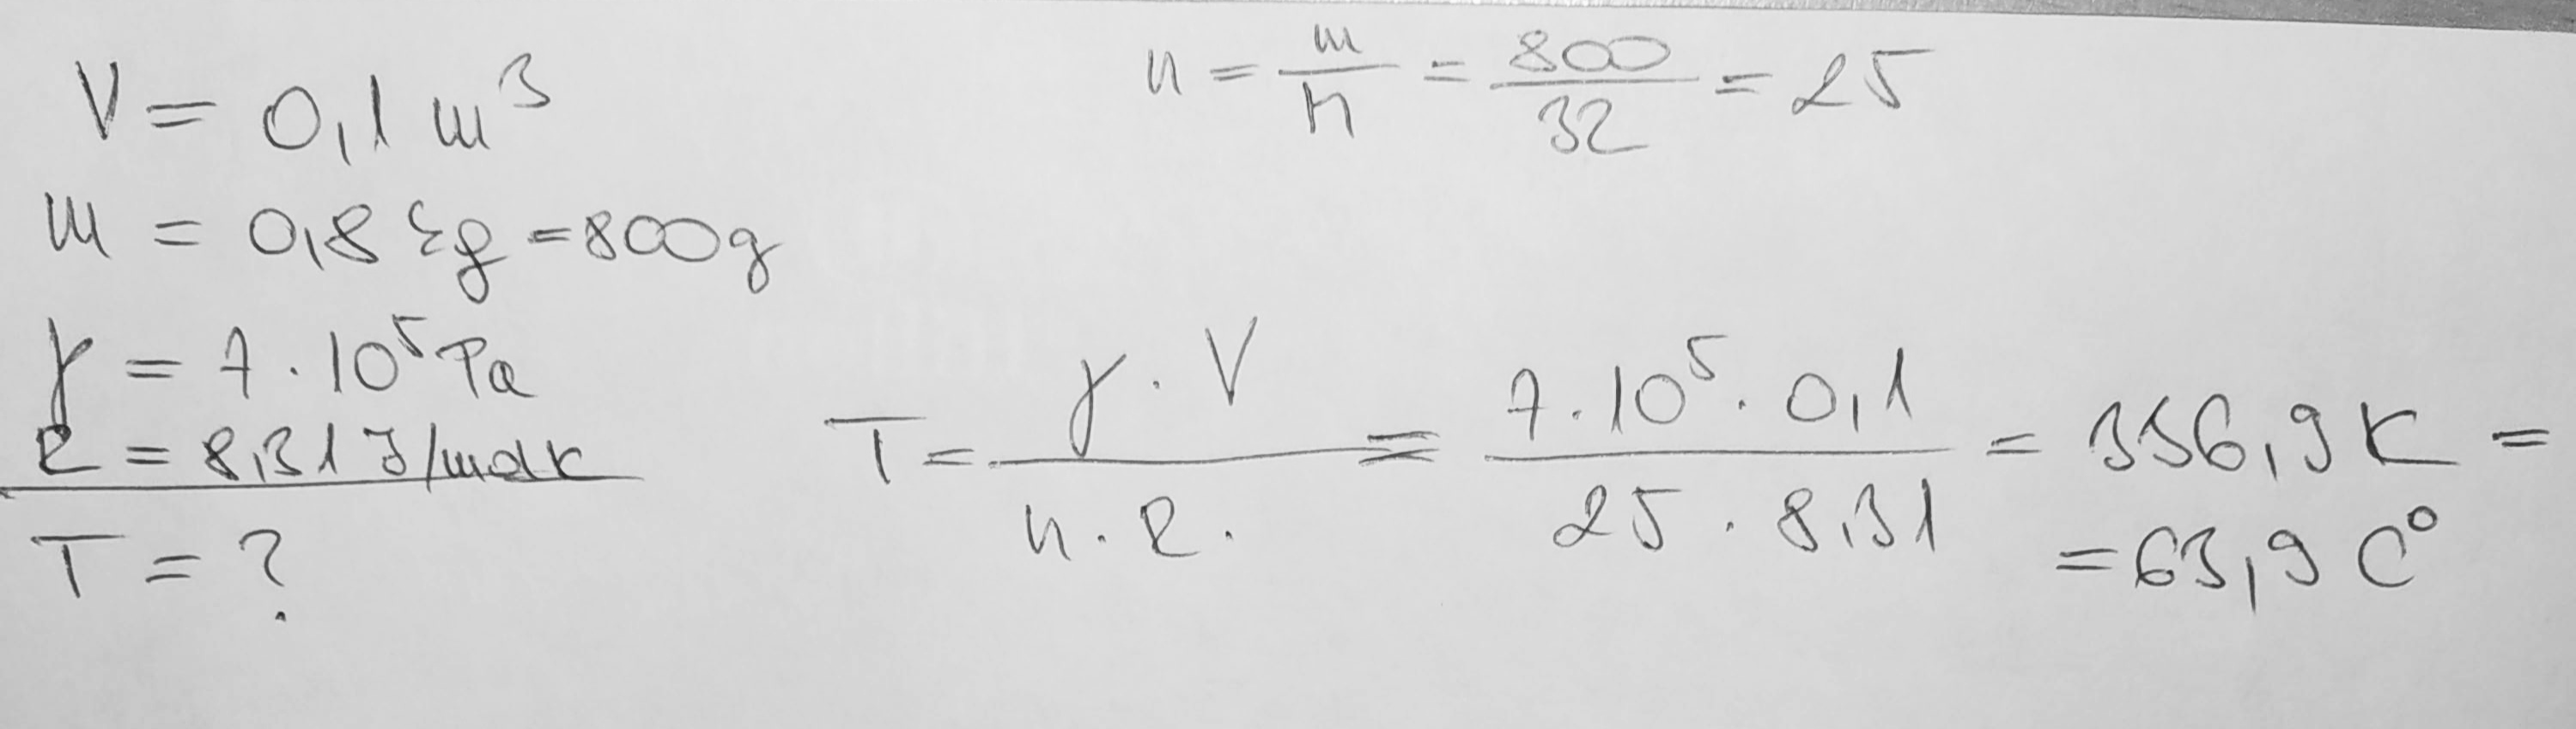 V = 0,1 m³
m = 0,8 kg = 800g
p = 7 · 10⁵ Pa
R = 8,31 J/molK
T = ?
n = m/M = 800/32 = 25
T = p · V / n · R. = 7 · 10⁵ · 0,1 / 25 · 8,31 = 336,9 K =
= 63,9 C°